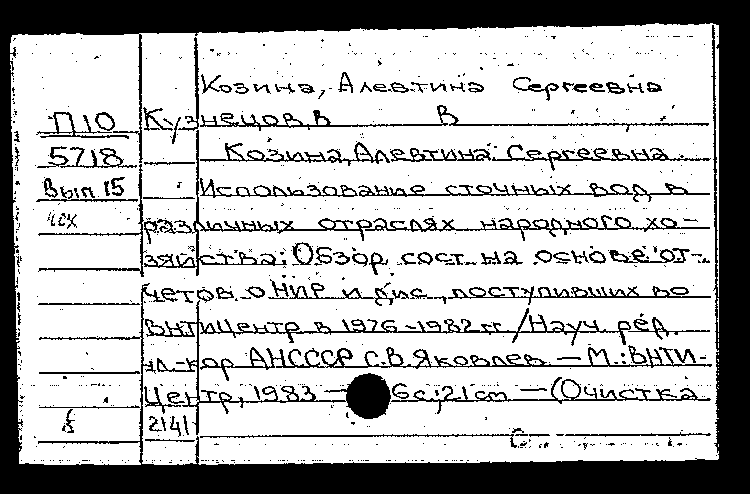 Козина, Алевтина Сергеевна
П10 Кузнецов, в В
5718 Козина, Алевтина Сергеевна
Вып 15 Использование сточных вод в
чех различных отраслях народного хо-
зяйства: Обзор сост. на основе от-
четов о НИР и дис., поступивших во
ВНТИЦентр в 1976-1982 гг. / Науч. ред.
чл.-кор АНСССР С.В. Яковлев — М.: ВНТИ-
Центр, 1983 — 6с; 21 cm — (Очистка
2141